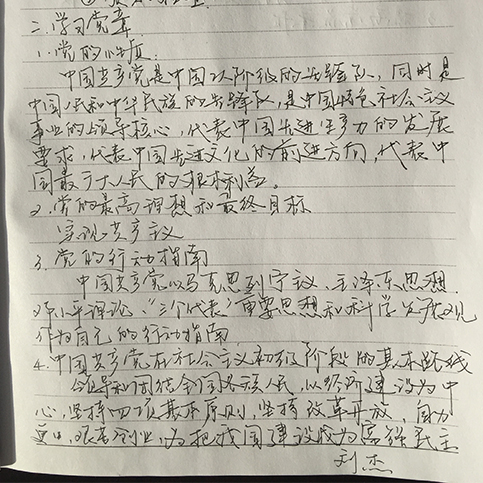 二、学习党章
1、党的性质:
中国共产党是中国工人阶级的先锋队,同时是
中国人民和中华民族的先锋队,是中国特色社会主义
事业的领导核心,代表中国先进生产力的发展
要求,代表中国先进文化的前进方向,代表中
国最广大人民的根本利益。
2、党的最高理想和最终目标
实现共产主义
3、党的行动指南
中国共产党以马克思列宁主义、毛泽东思想、
邓小平理论、“三个代表”重要思想和科学发展观
作为自己的行动指南
4、中国共产党在社会主义初级阶段的基本路线
领导和团结全国各族人民,以经济建设为中
心,坚持四项基本原则,坚持改革开放,自力
更生,艰苦创业,为把我国建设成为富强民主
刘杰